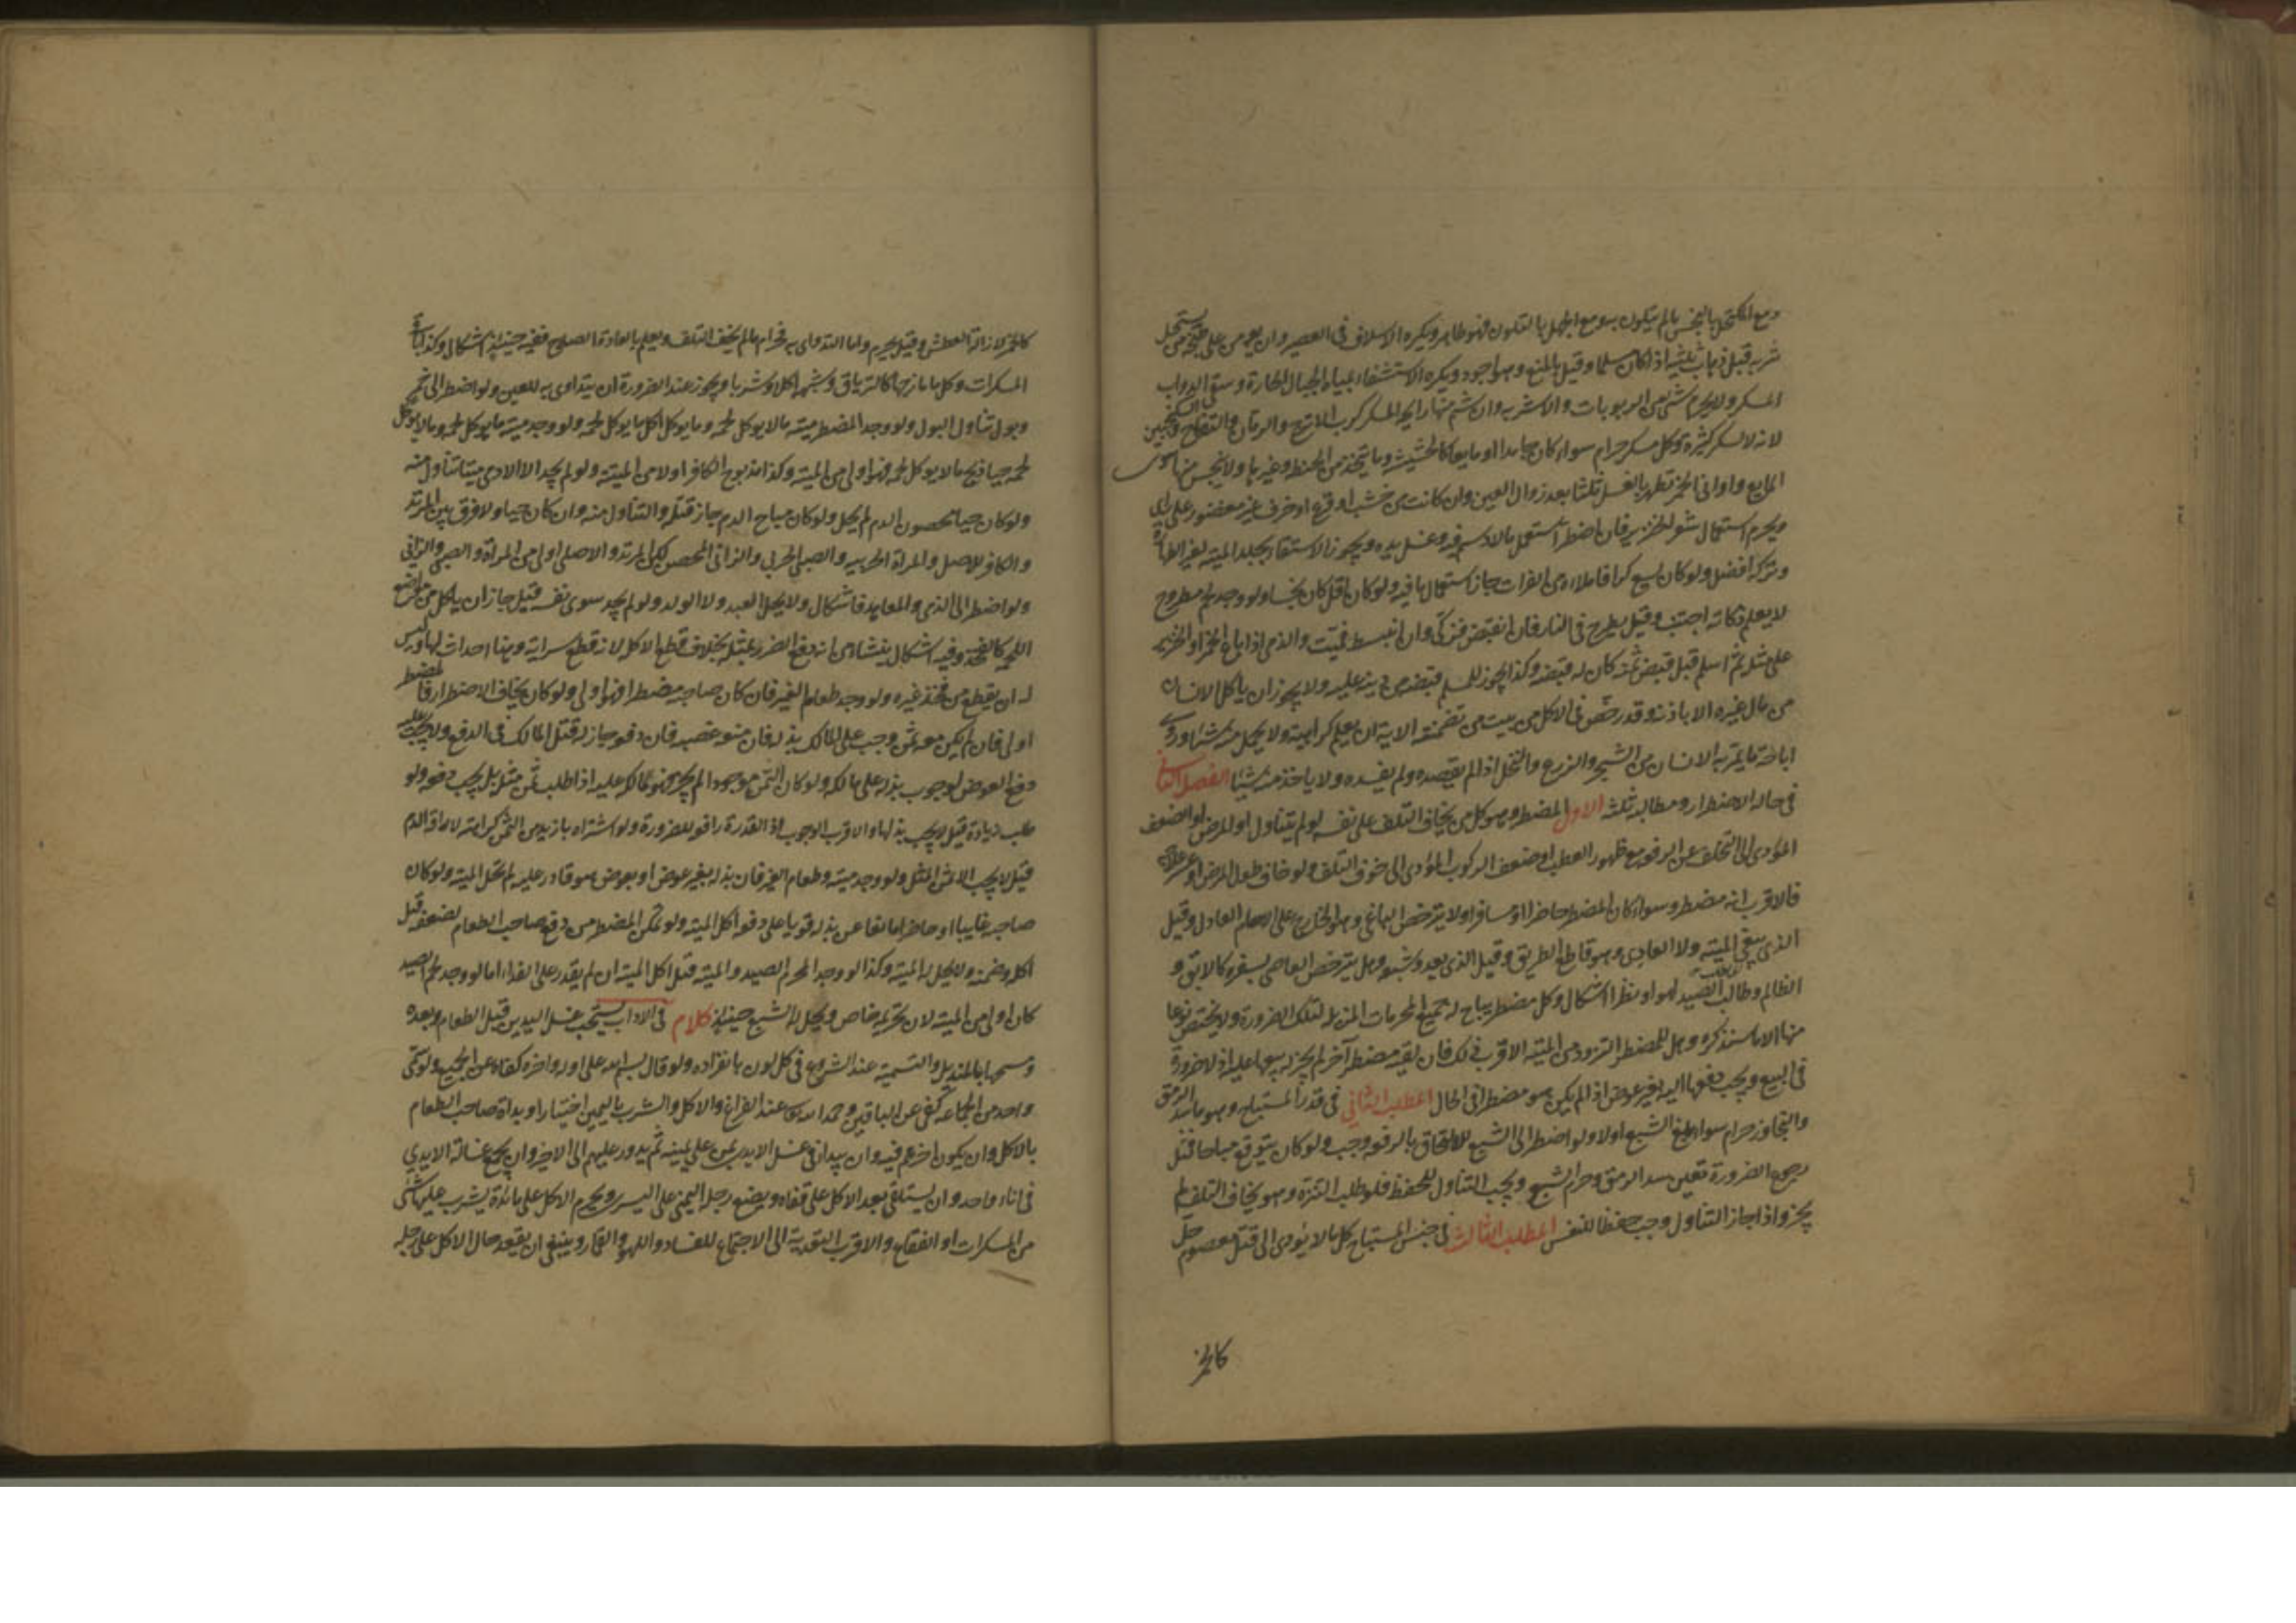 دمع المكتحل بالنجس ما لم يتلون به ومع الجهل بالتلون فهو طاهر ويكره الاسلاف في العصير وان يؤمن على طبخه من يستحل
شربه قبل ذهاب ثلثيه اذا كان مسلما وقيل بالمنع وهو اجود ويكره الاستشفاء بمياه الجبال الحارة وسقي الدواب
المسكر ولا يحرم شئ من الربوبات والاشربه وان شم منها رايحه المسكر كرب الاترج والرمان والتفاح والسكنجبين
لانه لا يسكر كثيره وكل مسكر حرام سواء كان جامدا او مايعا كالحشيشه وما يتخذ من الحنطه وغيرها ولا ينجس منها سوى
المايع واواني الخمر تطهر بالغسل ثلثا بعد زوال العين وان كانت من خشب او قرع او خزف غير مغضور على راى
ويحرم استعمال شعر الخنزير فان اضطر استعمل ما لا دسم فيه وغسل يده ويجوز الاستقاء بجلد الميته لغير الطهارة
وتركه افضل ولو كان يسع كرا فاملاءه من الفرات جاز استعمال ما فيه ولو كان اقل كان نجسا ولو وجد لحم مطروح
لا يعلم ذكاته اجتنب وقيل يطرح في النار فان انقبض فذكي وان انبسط فميت والذمي اذا باع الخمر او الخنزير
على مثله ثم اسلم قبل قبض ثمنه كان له قبضه وكذا يجوز للمسلم قبضه من دينه عليه ولا يجوز ان ياكل الانسان
من مال غيره الا باذنه وقد رخص في الاكل من بيت من تضمنته الاية ان لم يعلم كراهيته ولا يحمل منه شئا وروي
اباحة ما يمر به الانسان من الشجر والزرع والنخل اذا لم يقصده ولم يفسده ولا ياخذ منه شيئا الفصل الثاني
في حاله الاضطرار ومطالبه ثلثه الاول المضطر وهو كل من يخاف التلف على نفسه لو لم يتناول او المرض او الضعف
المؤدى الى التخلف عن الرفقه مع ظهور العطب او ضعف الركوب المؤدى الى خوف التلف ولو خاف طول المرض او عسر علاجه
فالاقرب انه مضطر وسواء كان المضطر حاضرا او مسافرا ولا يترخص الباغي وهو الخارج على الامام العادل وقيل
الذى يبغي الميته ولا العادى وهو قاطع الطريق وقيل الذى يعدو شبعه وهل يترخص العاصي بسفره كالابق و
الظالم وطالب الصيد لهوا وبطرا اشكال وكل مضطر يباح له جميع المحرمات المزيله لتلك الضرورة ولا يختص نوعا
منها الا ما سنذكره وهل للمضطر التزود من الميته الاقرب ذلك فان لقيه مضطر آخر لم يجز له بيعها عليه اذ لا ضرورة
في البيع ويجب دفعها اليه بغير عوض اذا لم يكن هو مضطرا في الحال المطلب الثاني في قدر المستباح وهو ما يسد الرمق
والتجاوز حرام سواء بلغ الشبع اولا ولو اضطر الى الشبع للالتحاق بالرفقه وجب ولو كان يتوقع مباحا قبل
رجوع الضرورة تعين سد الرمق وحرم الشبع ويجب التناول للحفظ فلو طلب التنزه وهو يخاف التلف لم
يجز واذا جاز التناول وجب حفظا للنفس المطلب الثالث في جنس المستباح كل ما لا يؤدى الى قتل معصوم حل
كالخمر
كالخمر لازالة العطش وقيل يحرم واما التداوى به فحرام ما لم يخف التلف ويعلم بالعادة الصلاح ففيه حينئذ اشكال وكذا باقي
المسكرات وكل ما مازجها كالترياق وشبهه اكلا وشربا ويجوز عند الضرورة ان يتداوى به للعين ولو اضطر الى خمر
وبول تناول البول ولو وجد المضطر ميته ما لا يوكل لحمه وما يوكل اكل ما يوكل لحمه ولو وجد ميته ما يوكل لحمه وما لا يوكل
لحمه حيا ذبح ما لا يوكل لحمه فهو اولى من الميته وكذا مذبوح الكافر اولا من الميتة ولو لم يجد الا الادمي ميتا تناول منه
ولو كان حيا محصون الدم لم يحل ولو كان مباح الدم جاز قتله والتناول منه وان كان حيا ولا فرق بين المرتد
والكافر الاصل والمراة الحربيه والصبي الحربي والزاني المحصن لكن المرتد والاصلي اولى من المراة والصبي والزاني
ولو اضطر الى الذمي والمعاهد فاشكال ولا يحل العبد ولا الولد ولو لم يجد سوى نفسه قيل جاز ان ياكل من مواضع
اللحم كالفخذ وفيه اشكال ينشاء من انه دفع الضرر بمثله بخلاف قطع الاكل لانه قطع سراية وهنا احداث لها وليس
له ان يقطع من فخذ غيره ولو وجد طعام الغير فان كان صاحبه مضطرا فهو اولى ولو كان يخاف الاضطرار فالمضطر
اولى فان لم يكن معه ثمن وجب على المالك بذله فان منعه غصبه فان دفعه جاز له قتل المالك في الدفع ولا يجب عليه
دفع العوض لوجوب بذله على مالكه ولو كان الثمن موجودا لم يجز قهر مالكه عليه اذا طلب ثمن مثله بل يجب دفعه ولو
طلب زيادة قيل لا يجب بذلها والاقرب الوجوب اذ القدرة رافعه للضرورة ولو اشتراه بازيد من الثمن كراهة لاراقة الدم
قيل لا يجب الا ثمن المثل ولو وجد ميته وطعام الغير فان بذله بغير عوض او بعوض هو قادر عليه لم تحل الميته ولو كان
صاحبه غايبا او حاضرا مانعا عن بذله قويا على دفعه اكل الميته ولو تمكن المضطر من دفع صاحب الطعام لضعفه قيل
اكله وضمنه ولا يحل له الميته وكذا لو وجد المحرم الصيد والميته قيل اكل الميته ان لم يقدر على الفداء اما لو وجد لحم الصيد
كان اولى من الميته لان تحريمه خاص ويحل له الشبع حينئذ كلام في الاداب يستحب غسل اليدين قبل الطعام وبعده
ومسحهما بالمنديل والتسميه عند الشروع في كل لون بانفراده ولو قال بسم الله على اوله واخره كفاه عن الجميع ولو سمى
واحد من الجماعه كفى عن الباقين وحمد الله تعالى عند الفراغ والاكل والشرب باليمين اختيارا وبداة صاحب الطعام
بالاكل وان يكون اخرهم فيه وان يبدا في غسل الايدي بمن على يمينه ثم يدور عليهم الى الاخير وان يجمع غسالة الايدي
في اناء واحد وان يستلقي بعد الاكل على قفاه ويضع رجله اليمنى على اليسرى ويحرم الاكل على مائدة يشرب عليها شئ
من المسكرات او الفقاع والاقرب التعدية الى الاجتماع للفساد واللهو والقمار وينبغي ان يقعد حال الاكل على رجله